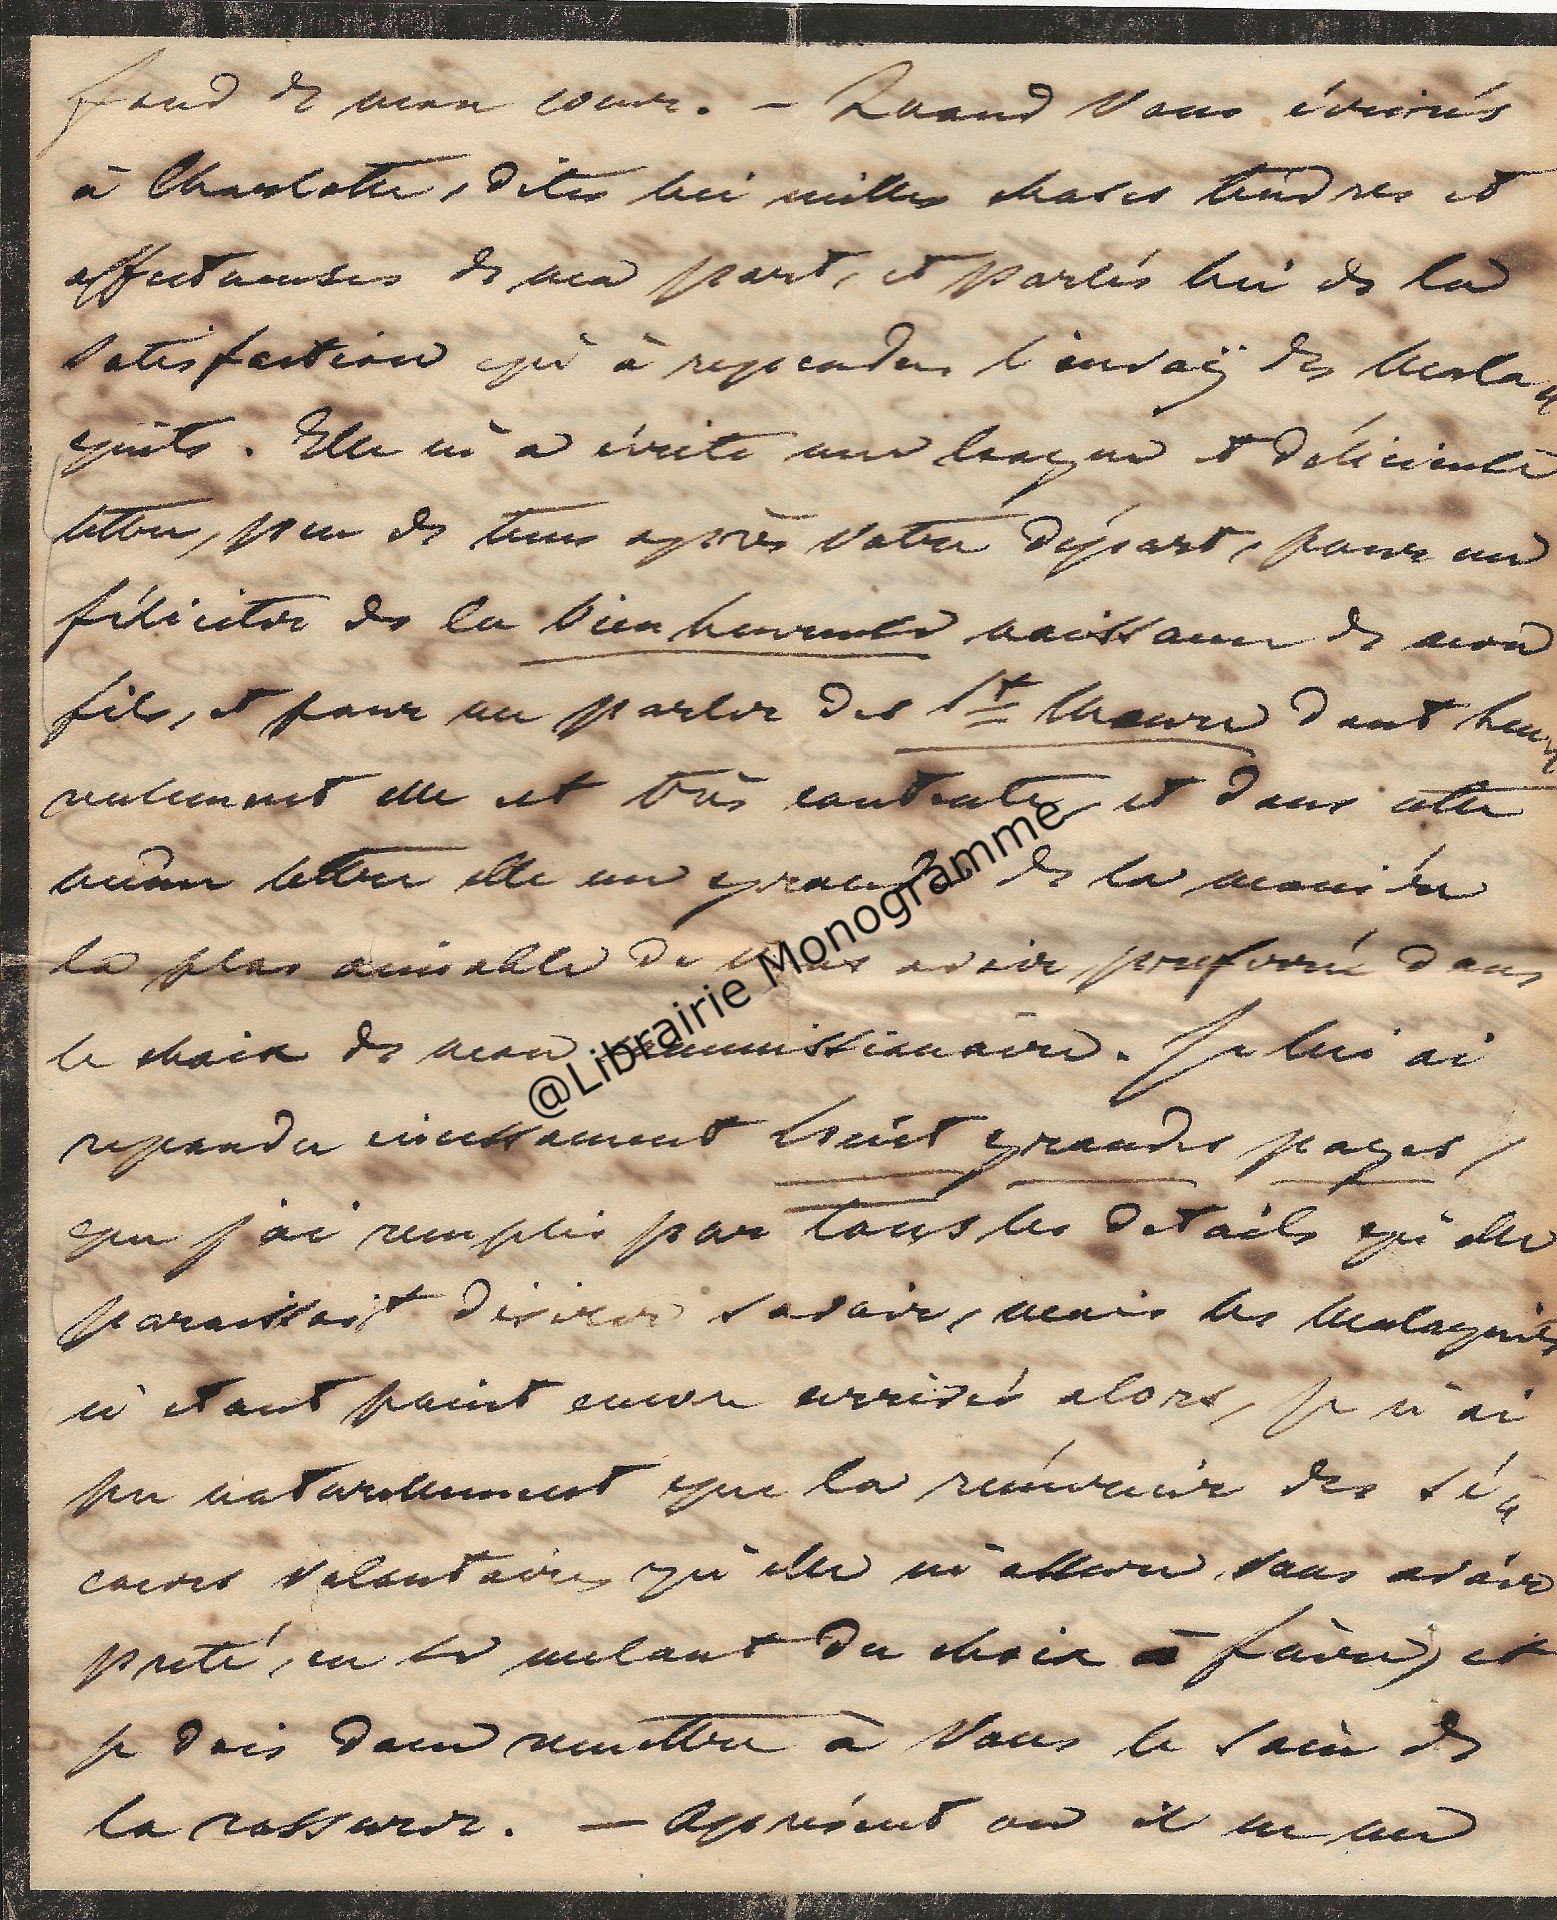 fond de mon coeur. — Quand Vous écrirés
à Charlotte, dites lui milles choses tendres et
affectueuses de ma part, et parlés lui de la
satisfaction qu'à rependue l'envoÿ des Mala-
quits. Elle m'a écrite une longue et délicieuse
lettre, peu de tems après Votre départ, pour me
féliciter de la bien heureuse naissance de mon
fils, et pour me parler des St Maure dont heu-
reusement elle est très contente, et dans cette
même lettre elle me gronde de la manière
la plus aimable de Vous avoir preferré dans
le choix de mon commissionaire. Je lui ai
repondu incessament huit grandes pages,
que j'ai remplis par tous les détails qu'elle
paraissait désirer savoir, mais les Malaquits
n'étant point encore arrivés alors, je n'ai
pu naturellement que la rémercier des sé-
cours volontaires qu'elle m'assure Vous avoir
preté, en se melant du choix à faire, et
je dois donc remettre à Vous le soin de
la rassurer. — Apprésent on il me me
@Librairie Monogramme